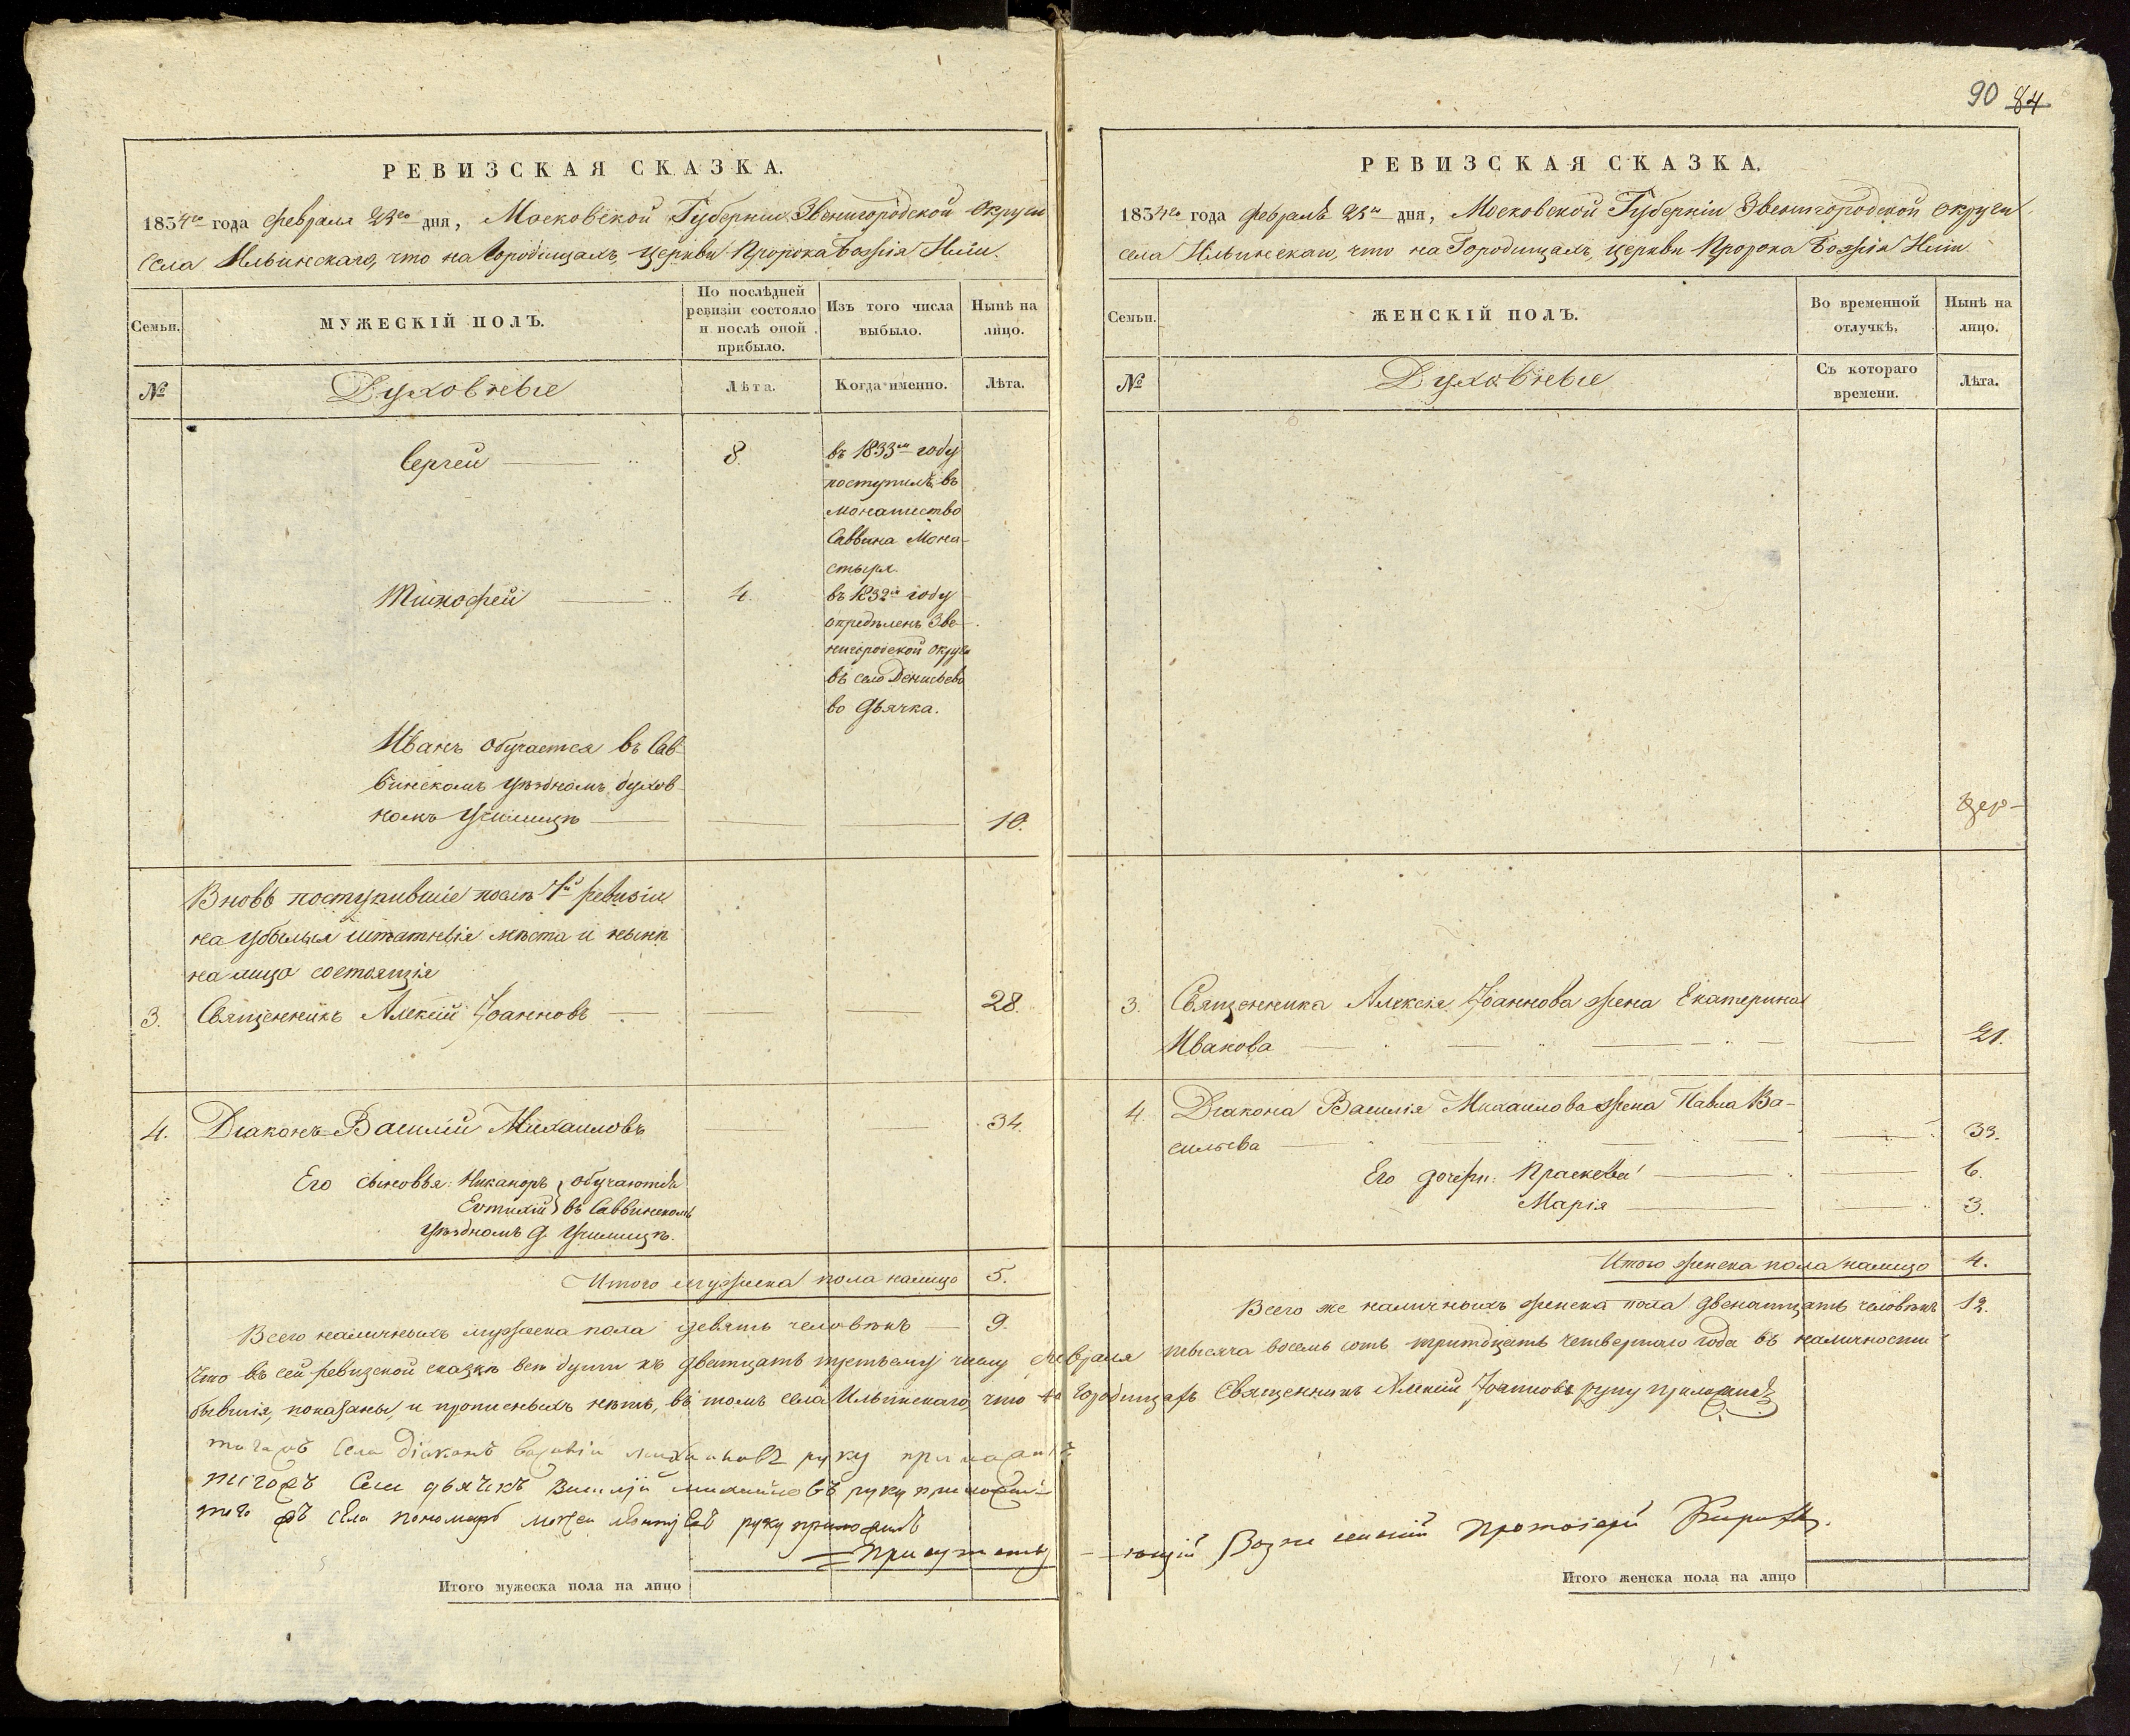 90 84
РЕВИЗСКАЯ СКАЗКА.
1834го года февраля 23го дня, Московской Губернии Звенигородской округи
села Ильинскаго, что на Городищахъ, церкви Пророка Божія Иліи.
Семьи.
МУЖЕСКІЙ ПОЛЪ.
По послѣдней
ревизіи состояло
и послѣ оной
прибыло.
Изъ того числа
выбыло.
Нынѣ на
лицо.
№
Духовные
Лѣта.
Когда именно.
Лѣта.
Сергей 8. въ 1833м году
поступилъ въ
монашество
Саввина Мона-
стыря.
Тимофей 4. въ 1832м году
опредѣленъ Зве-
нигородской округи
въ село Денисьево
во дьячка.
Иванъ обучается въ Сав-
винскомъ уѣздномъ духов-
номъ училищѣ 10.
Вновь поступившіе послѣ 7й ревизіи
на убылыя штатныя мѣста и нынѣ
на лицо состоящія
3. Священникъ Алексій Іоанновъ 28.
4. Діаконъ Василій Михаиловъ 34.
Его сыновья: Никаноръ } обучаются
Евтихій } въ Саввинскомъ
уѣздномъ д. училищѣ.
Итого мужеска пола налицо 5.
Всего наличныхъ мужеска пола девять человѣкъ 9.
РЕВИЗСКАЯ СКАЗКА.
1834го года февраля 23го дня, Московской Губерніи Звенигородской округи
села Ильинскаго, что на Городищахъ, церкви Пророка Божія Иліи.
Семьи.
ЖЕНСКІЙ ПОЛЪ.
Во временной
отлучкѣ.
Нынѣ на
лицо.
№
Духовные
Съ котораго
времени.
Лѣта.
Цер-
3. Священника Алексія Іоаннова жена Екатерина
Иванова 21.
4. Діакона Василія Михаилова жена Павла Ва-
сильева 33.
Его дочери: Праскева 6.
Марія 3.
Итого женска пола налицо 4.
Всего же наличныхъ женска пола двенатцать человѣкъ 12.
Что въ сей ревизской сказкѣ всѣ души къ дватцать третьему числу февраля тысяча восемь сотъ тритдцать четвертаго года въ наличности
бывшія, показаны, и прописныхъ нѣтъ, въ томъ села Ильинскаго, что на Городищахъ Священникъ Алексій Іоанновъ руку приложилъ
тогожъ села діаконъ василій михаиловъ руку приложилъ
тогожъ села дьячекъ Василій михайловъ руку приложилъ
того жъ села пономарь руку приложилъ
Присутств-ющій Вознесенскій Протоіерей
Итого мужеска пола на лицо
Итого женска пола на лицо